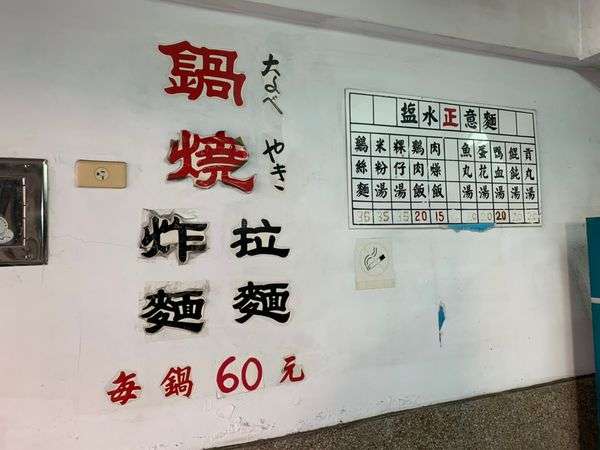 鍋燒
なべやき
炸麵
拉麵
每鍋60元
塩水正意麵
鷄絲麵 35
米粉湯 35
粿仔湯
鷄肉飯 20
肉燥飯 15
魚丸湯
蛋花湯
鴨血湯 20
餛飩湯
貢丸湯